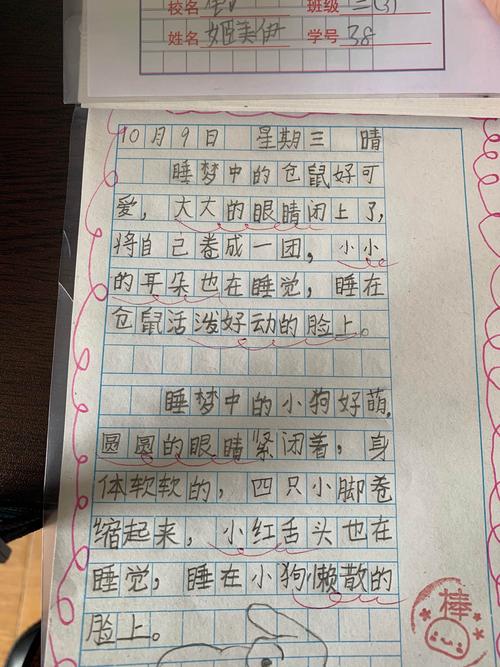 校名
班级 三(3)
姓名 姬美伊 学号 38
10月9日 星期三 晴
睡梦中的仓鼠好可
爱，大大的眼睛闭上了，
将自己卷成一团，小小
的耳朵也在睡觉，睡在
仓鼠活泼好动的脸上。
睡梦中的小狗好萌，
圆圆的眼睛紧闭着，身
体软软的，四只小脚卷
缩起来，小红舌头也在
睡觉，睡在小狗懒散的
脸上。
棒